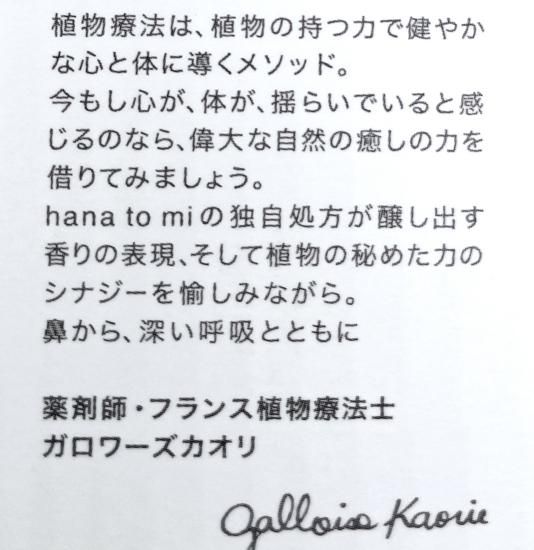 植物療法は、植物の持つ力で健やか
な心と体に導くメソッド。
今もし心が、体が、揺らいでいると感
じるのなら、偉大な自然の癒しの力を
借りてみましょう。
hana to miの独自処方が醸し出す
香りの表現、そして植物の秘めた力の
シナジーを愉しみながら。
鼻から、深い呼吸とともに
薬剤師・フランス植物療法士
ガロワーズカオリ
Gallois Kaorie